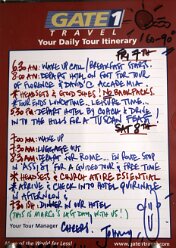 GATE 1
TRAVEL
Your Daily Tour Itinerary
60-90°
FRI 7TH
6:30 AM: WAKE UP CALL / BREAKFAST STARTS.
8:00 AM: DEPART HOTEL ON FOOT FOR TOUR
OF FLORENCE & DAVID @ ACCADEMIA
* HEADSETS & GOOD SHOES! NO BACKPACKS
* TOUR ENDS LUNCHTIME. LEISURE TIME.
DEPART HOTEL BY COACH & DRIVE
INTO THE HILLS FOR A TUSCAN FEAST!
SAT 8TH
7:00 AM: WAKE UP
7:30 AM: LUGGAGE OUT
8:30 AM: DEPART FOR ROME... EN ROUTE STOP
IN ASSISI FOR A GUIDED TOUR & FREE TIME.
* HEADSETS & CHURCH ATTIRE ESSENTIAL
* ARRIVE & CHECK INTO HOTEL QUIRINALE
IN AFTERNOON
DINNER IN OUR HOTEL
(THIS IS MARCO'S LAST DAY WITH US!)
Your Tour Manager
CHEERS!
More of the World for Less!
www.gate1travel.com